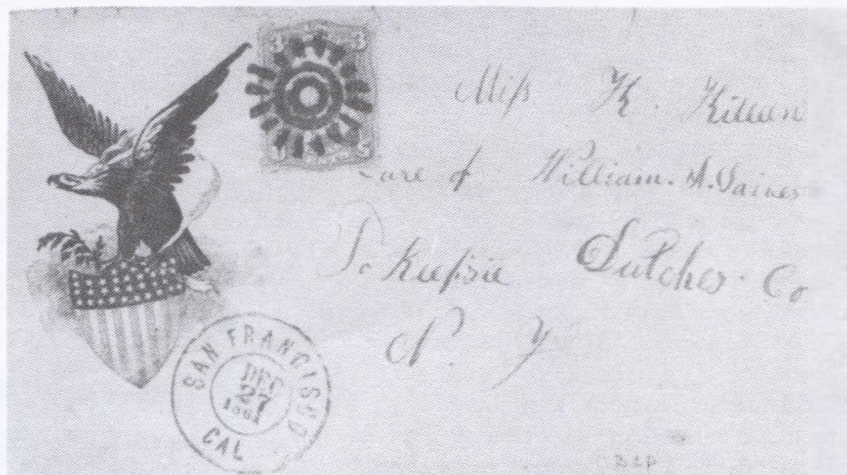 3 3
Miss K. Killean
Care of William. A. Gaines
Po Keepsie Dutches. Co
N. Y
SAN FRANCISCO
DEC
27
CAL